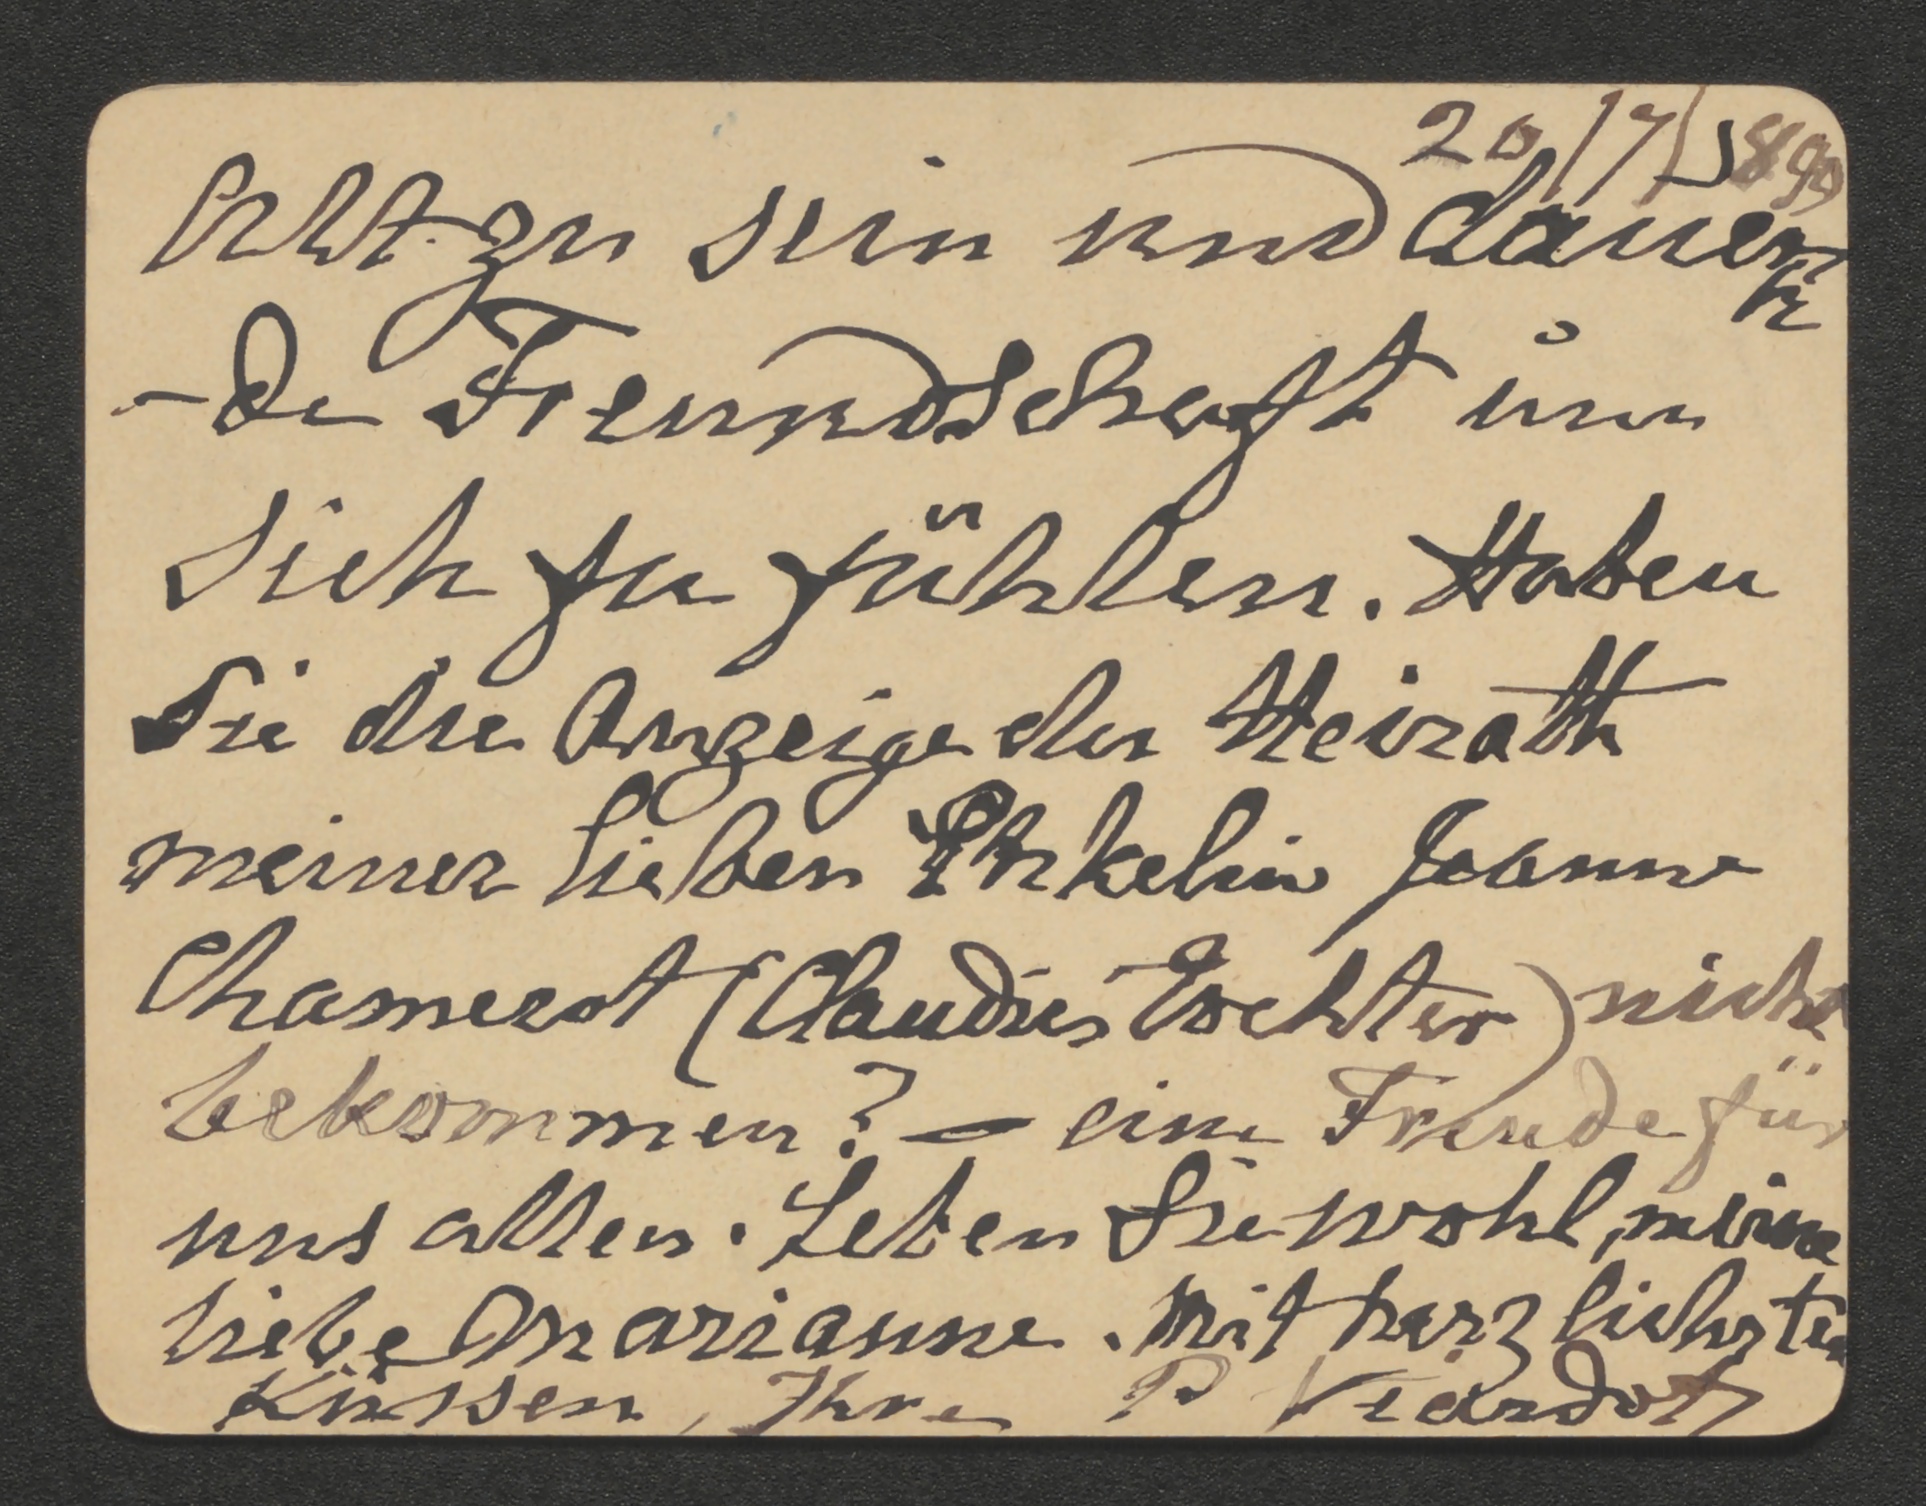 20/7/1890
Alt zu sein und dauern
-de Freundschaft um
sich zu fühlen. Haben
Sie die Anzeige der Heirath
meiner lieben Enkelin Jeanne
Chamerot (Claudies Tochter) nicht
bekommen? — eine Freude für
uns allen. Leben Sie wohl, meine
liebe Marianne. Mit herzlichsten
Küssen, Ihre P Viardot